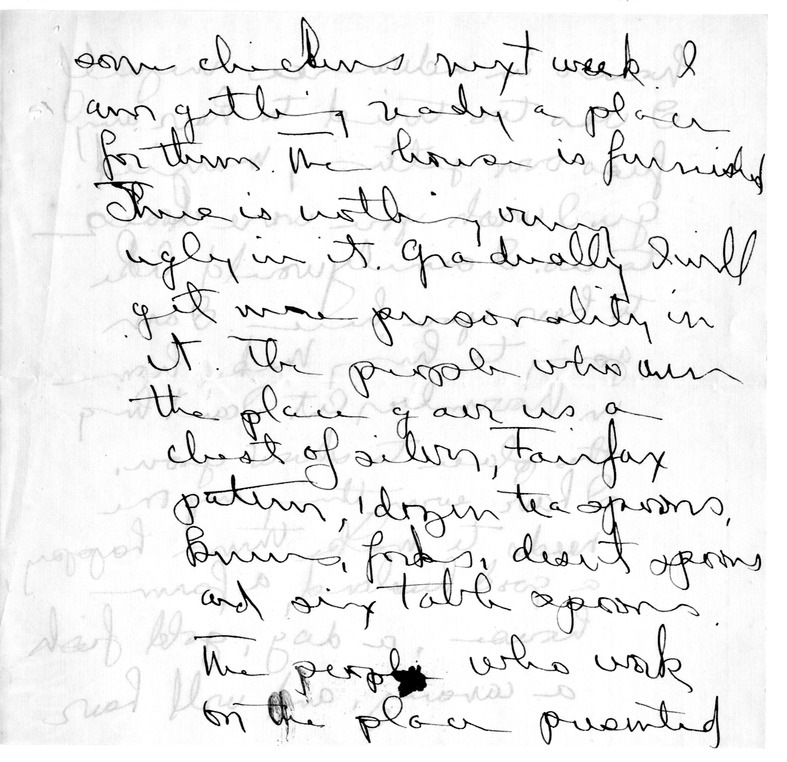 some chickens next week. I
am getting ready a place
for them. The house is furnished
There is nothing very
ugly in it. Gradually I will
get more personality in
it. The people who own
the place gave us a
chest of silver, Fairfax
pattern, 1 dozen tea spoons,
knives, forks, desert spoons
and six table spoons.
The people who work
on the place presented